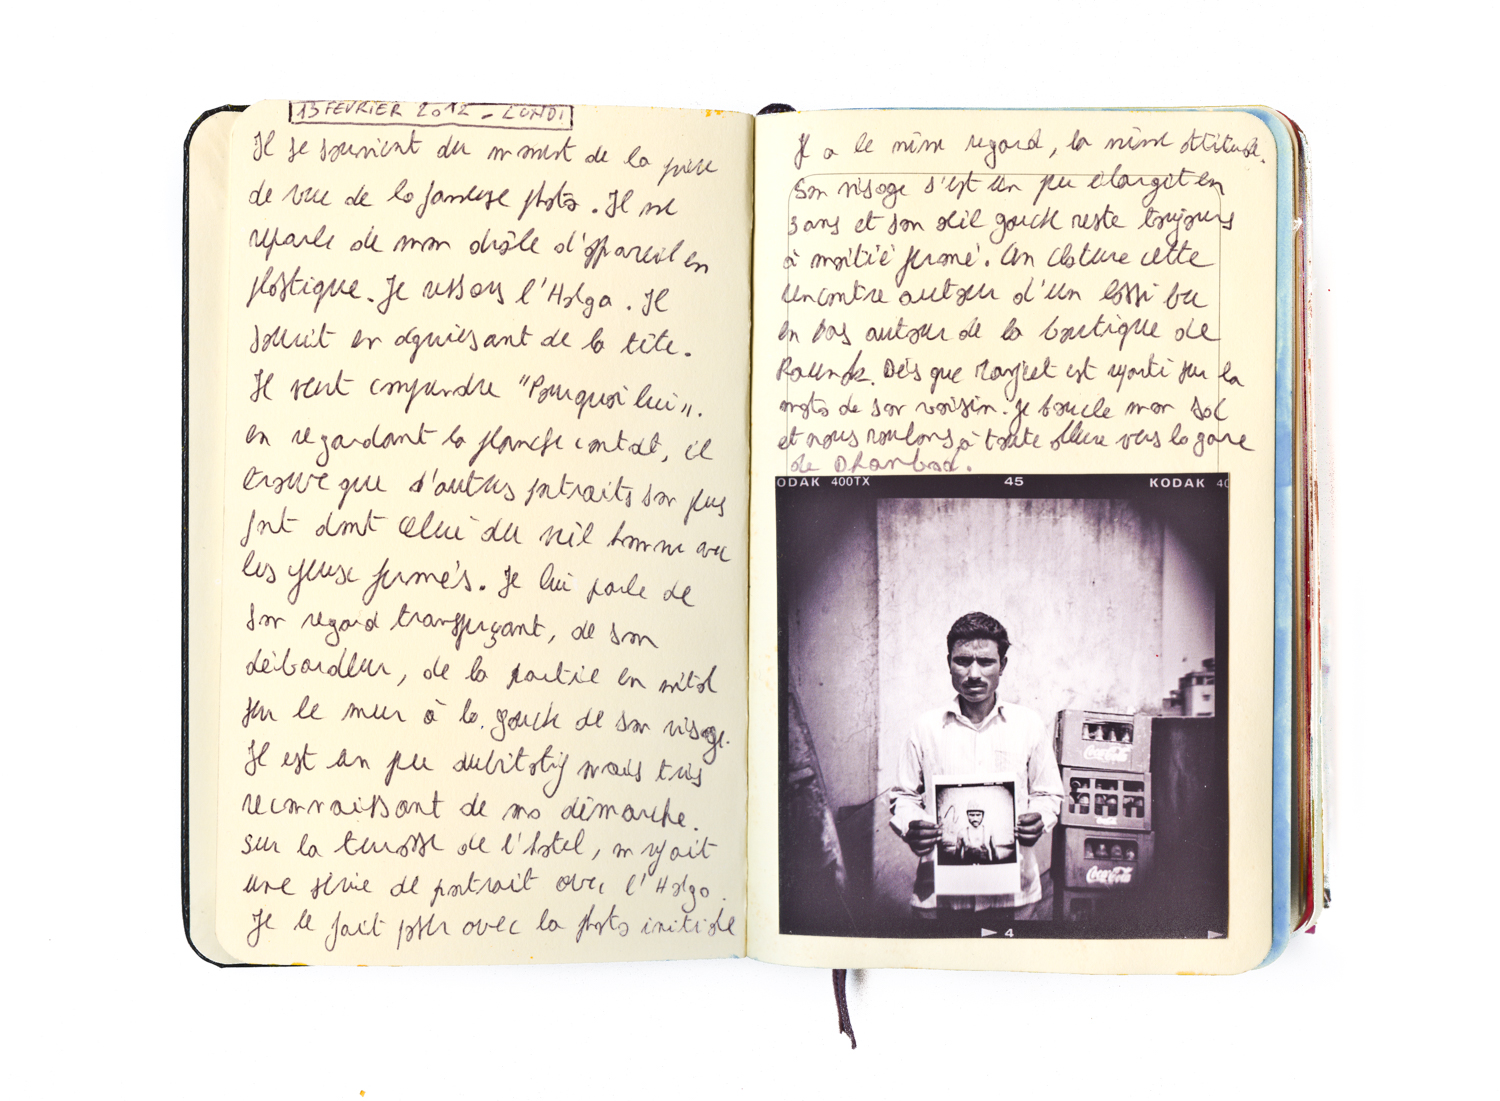 13 FEVRIER 2012 - LUNDI
Il se souvient du moment de la prise
de vue de la fameuse photo. Il me
reparle de mon drôle d'appareil en
plastique. Je ressors l'Holga. Il
sourit en acquiesçant de la tête.
Il veut comprendre "Pourquoi lui".
en regardant la planche contact, il
trouve que d'autres portraits son plus
fort dont celui du vieil homme avec
les yeux fermés. Je lui parle de
son regard transperçant, de son
débardeur, de la partie en métal
sur le mur à la gauche de son visage.
Il est un peu dubitatif mais très
reconnaissant de ma démarche.
sur la terrasse de l'hotel, on refait
une série de portrait avec l'Holga.
Je le fait poser avec la photo initiale
Il a le même regard, la même attitude.
Son visage s'est un peu élargit en
3 ans et son œil gauche reste toujours
à moitié fermé. On cloture cette
rencontre autour d'un lassi bu
en bas autour de la boutique de
Dès que Ranjeet est reparti sur la
moto de son voisin. Je boucle mon sac
et nous roulons à toute allure vers la gare
de Dhanbad.
ODAK 400TX 45 KODAK 40
Coca-Cola
Coca-Cola
4